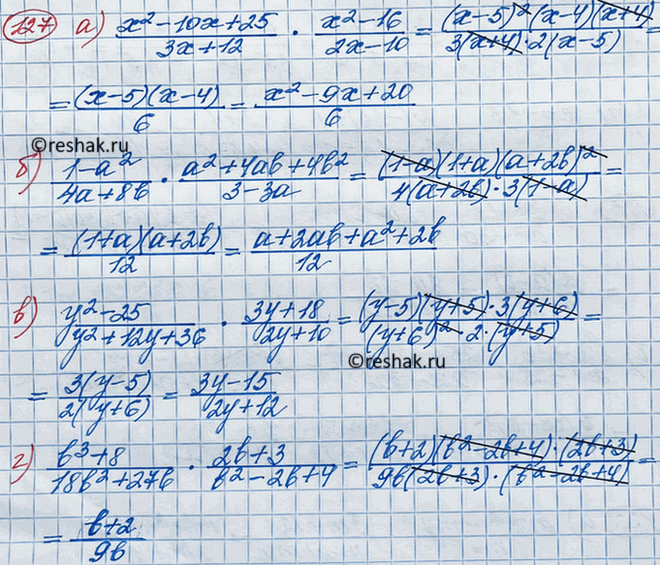 127 а) (x²-10x+25)/(3x+12) · (x²-16)/(2x-10) = ((x-5)²(x-4)(x+4))/(3(x+4)·2(x-5)) =
= ((x-5)(x-4))/6 = (x²-9x+20)/6
©reshak.ru
б) (1-a²)/(4a+8b) · (a²+4ab+4b²)/(3-3a) = ((1-a)(1+a)(a+2b)²)/(4(a+2b)·3(1-a)) =
= ((1+a)(a+2b))/12 = (a+2ab+a²+2b)/12
в) (y²-25)/(y²+12y+36) · (3y+18)/(2y+10) = ((y-5)(y+5)·3(y+6))/((y+6)²·2·(y+5)) =
©reshak.ru
= (3(y-5))/(2(y+6)) = (3y-15)/(2y+12)
г) (b³+8)/(18b²+27b) · (2b+3)/(b²-2b+4) = ((b+2)(b²-2b+4)·(2b+3))/(9b(2b+3)·(b²-2b+4)) =
= (b+2)/(9b)